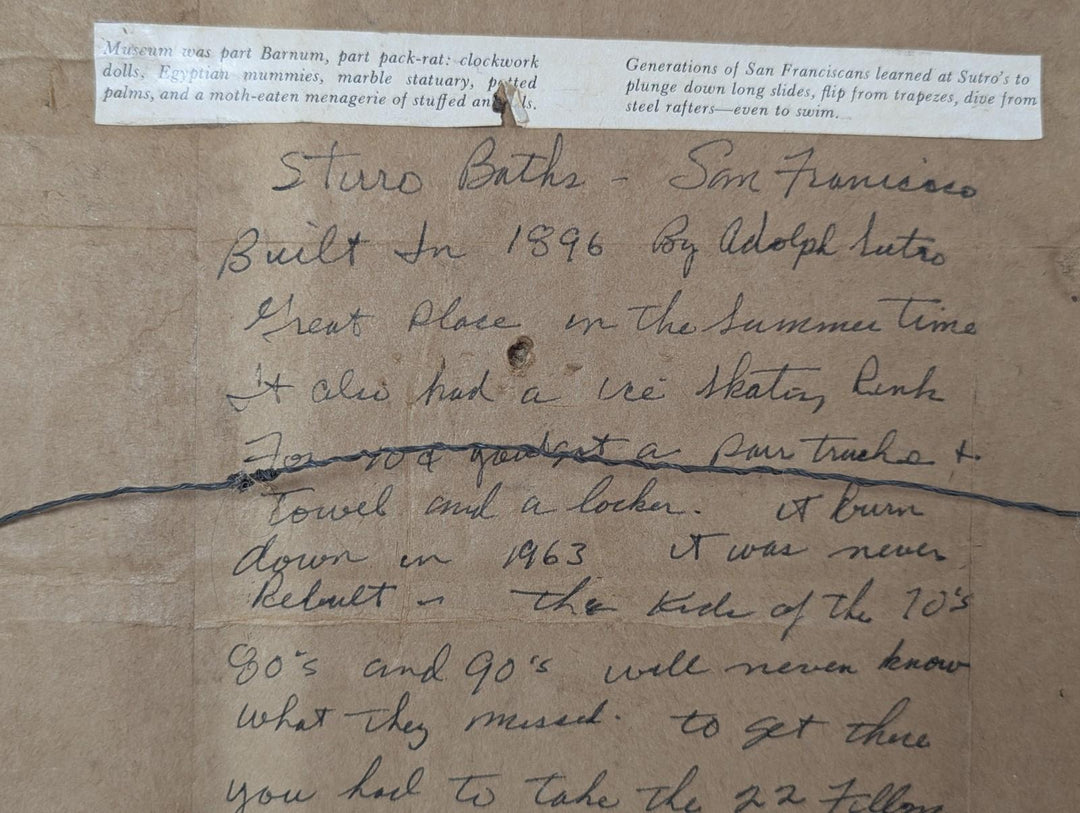 Museum was part Barnum, part pack-rat: clockwork
dolls, Egyptian mummies, marble statuary, potted
palms, and a moth-eaten menagerie of stuffed an ls.
Generations of San Franciscans learned at Sutro's to
plunge down long slides, flip from trapezes, dive from
steel rafters—even to swim.
Sturro Baths - San Francisco
Built In 1896 By Adolph Sutro
Great Place in the Summer Time
It also had a ice skating Rink
For 10¢ you got a pair trucks +
Towel and a locker. it burn
down in 1963 it was never
Rebuilt - the Kids of the 70's
80's and 90's will never know
what they missed. to get there
you had to take the 22 Fillmo